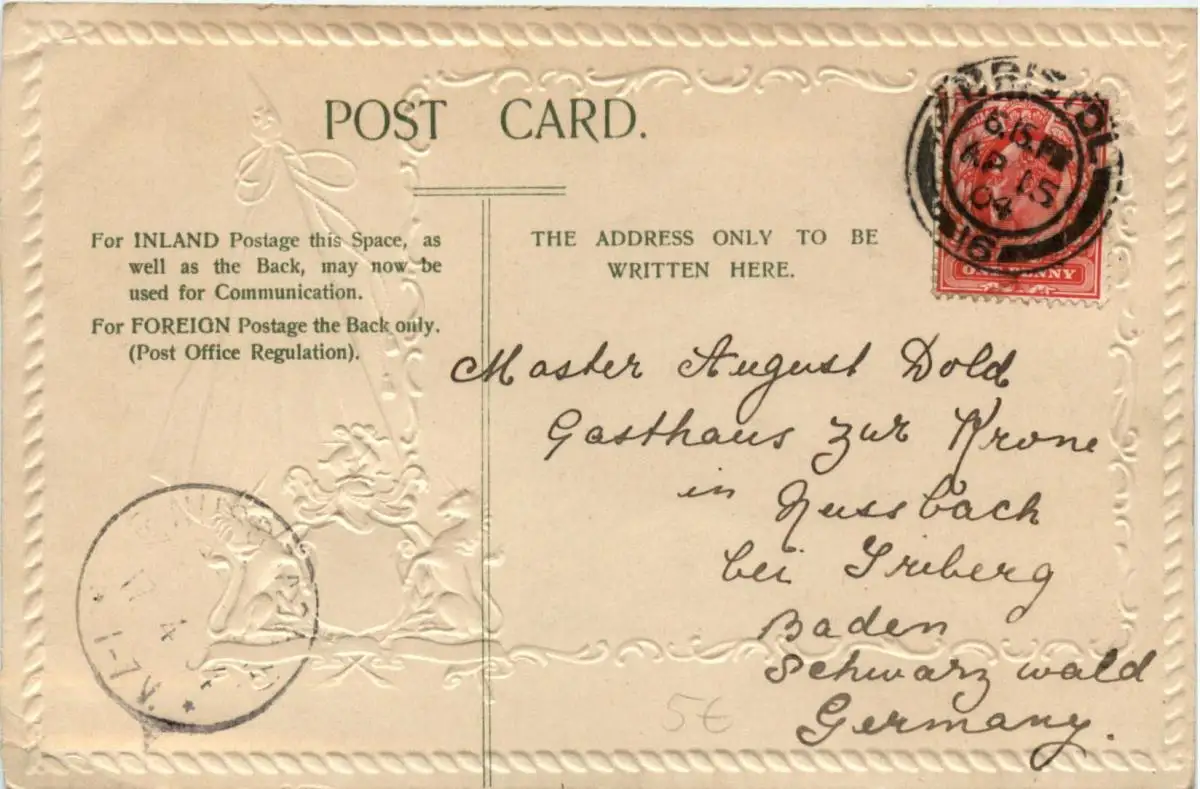 POST CARD.
For INLAND Postage this Space, as
well as the Back, may now be
used for Communication.
For FOREIGN Postage the Back only.
(Post Office Regulation).
THE ADDRESS ONLY TO BE
WRITTEN HERE.
BRISTOL
9.15 PM
AP 15
04
16
ONE PENNY
Master August Dold
Gasthaus zur Krone
in Nussbach
bei Triberg
Baden
Schwarzwald
Germany.
5€